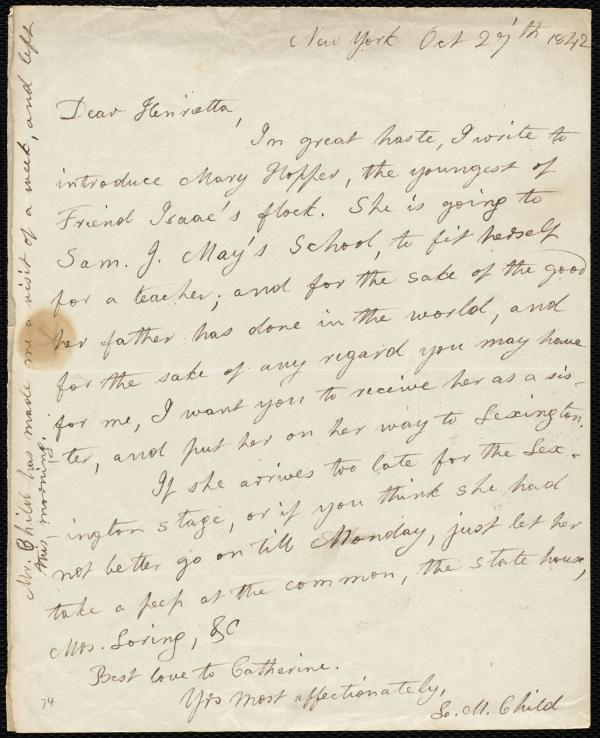 New York Oct 27th 1842
Dear Henrietta,
In great haste, I write to
introduce Mary Hopper, the youngest of
Friend Isaac's flock. She is going to
Sam. J. May's School, to fit herself
for a teacher; and for the sake of the good
her father has done in the world, and
for the sake of any regard you may have
for me, I want you to receive her as a sis-
ter, and put her on her way to Lexington.
If she arrives too late for the Lex-
ington stage, or if you think she had
not better go on till Monday, just let her
take a peep at the common, the state house,
Mrs. Loring, &c
Best love to Catherine.
Yrs most affectionately,
L. M. Child
Mr. Child has made me a visit of a week, and left
this morning.
74